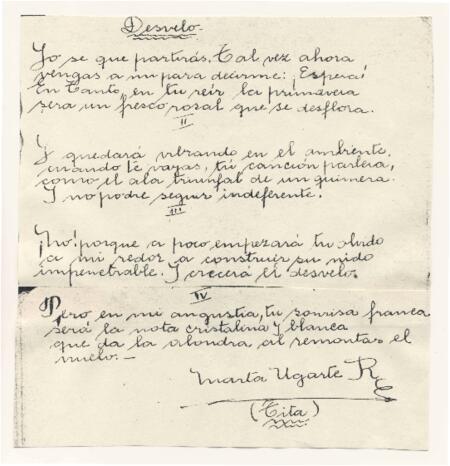 Desvelo.
Yo se que partirás. Tal vez ahora
vengas a mi para decirme: ¡Espera!
En tanto, en tu reir la primavera
sera un fresco rosal que se desflora.
II
Y quedará vibrando en el ambiente,
cuando te vayas, tu canción parlera,
como el ala triunfal de un quimera.
Y no podre seguir indeferente.
III
¡No! porque a poco empezará tu olvido
a mi redor a construir su nido
impenetrable. Y crecerá el desvelo.
IV
Pero en mi angustia, tu sonrisa franca
será la nota cristalina y blanca
que da la alondra, al remontar el
vuelo.—
Marta Ugarte R
(Tita)